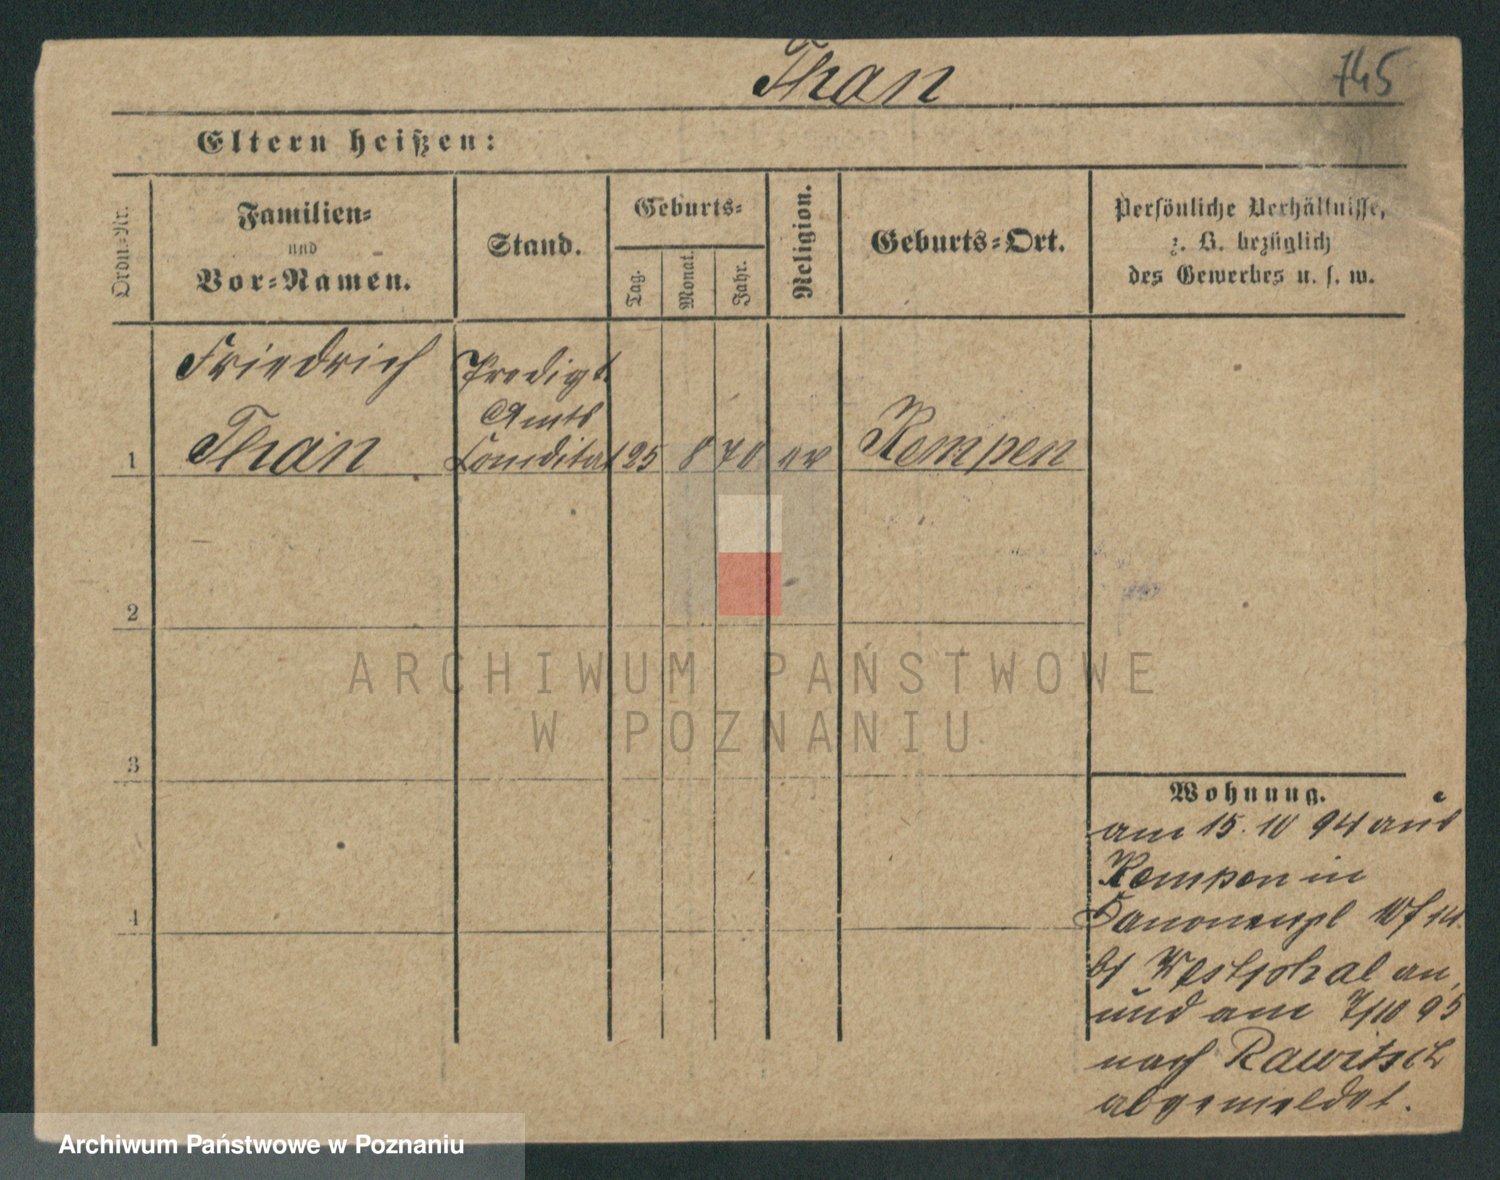 Than 745
Eltern heißen:
Ordn=Nr.
Familien=
und
Vor=Namen.
Stand.
Geburts=
Tag.
Monat.
Jahr.
Religion.
Geburts=Ort.
Persönliche Verhältnisse,
z. B. bezüglich
des Gewerbes u. s. w.
Friedrich
Than
Predigt
Amts
Candidat
1
25 8 70 ev
Kempen
2
3
4
ARCHIWUM PAŃSTWOWE
W POZNANIU
Wohnung.
am 15. 10 94 aus
Kempen in
Canonenpl 14.
bei Westphal an
und am 7/10 95
nach Rawitsch
abgemeldet.
Archiwum Państwowe w Poznaniu